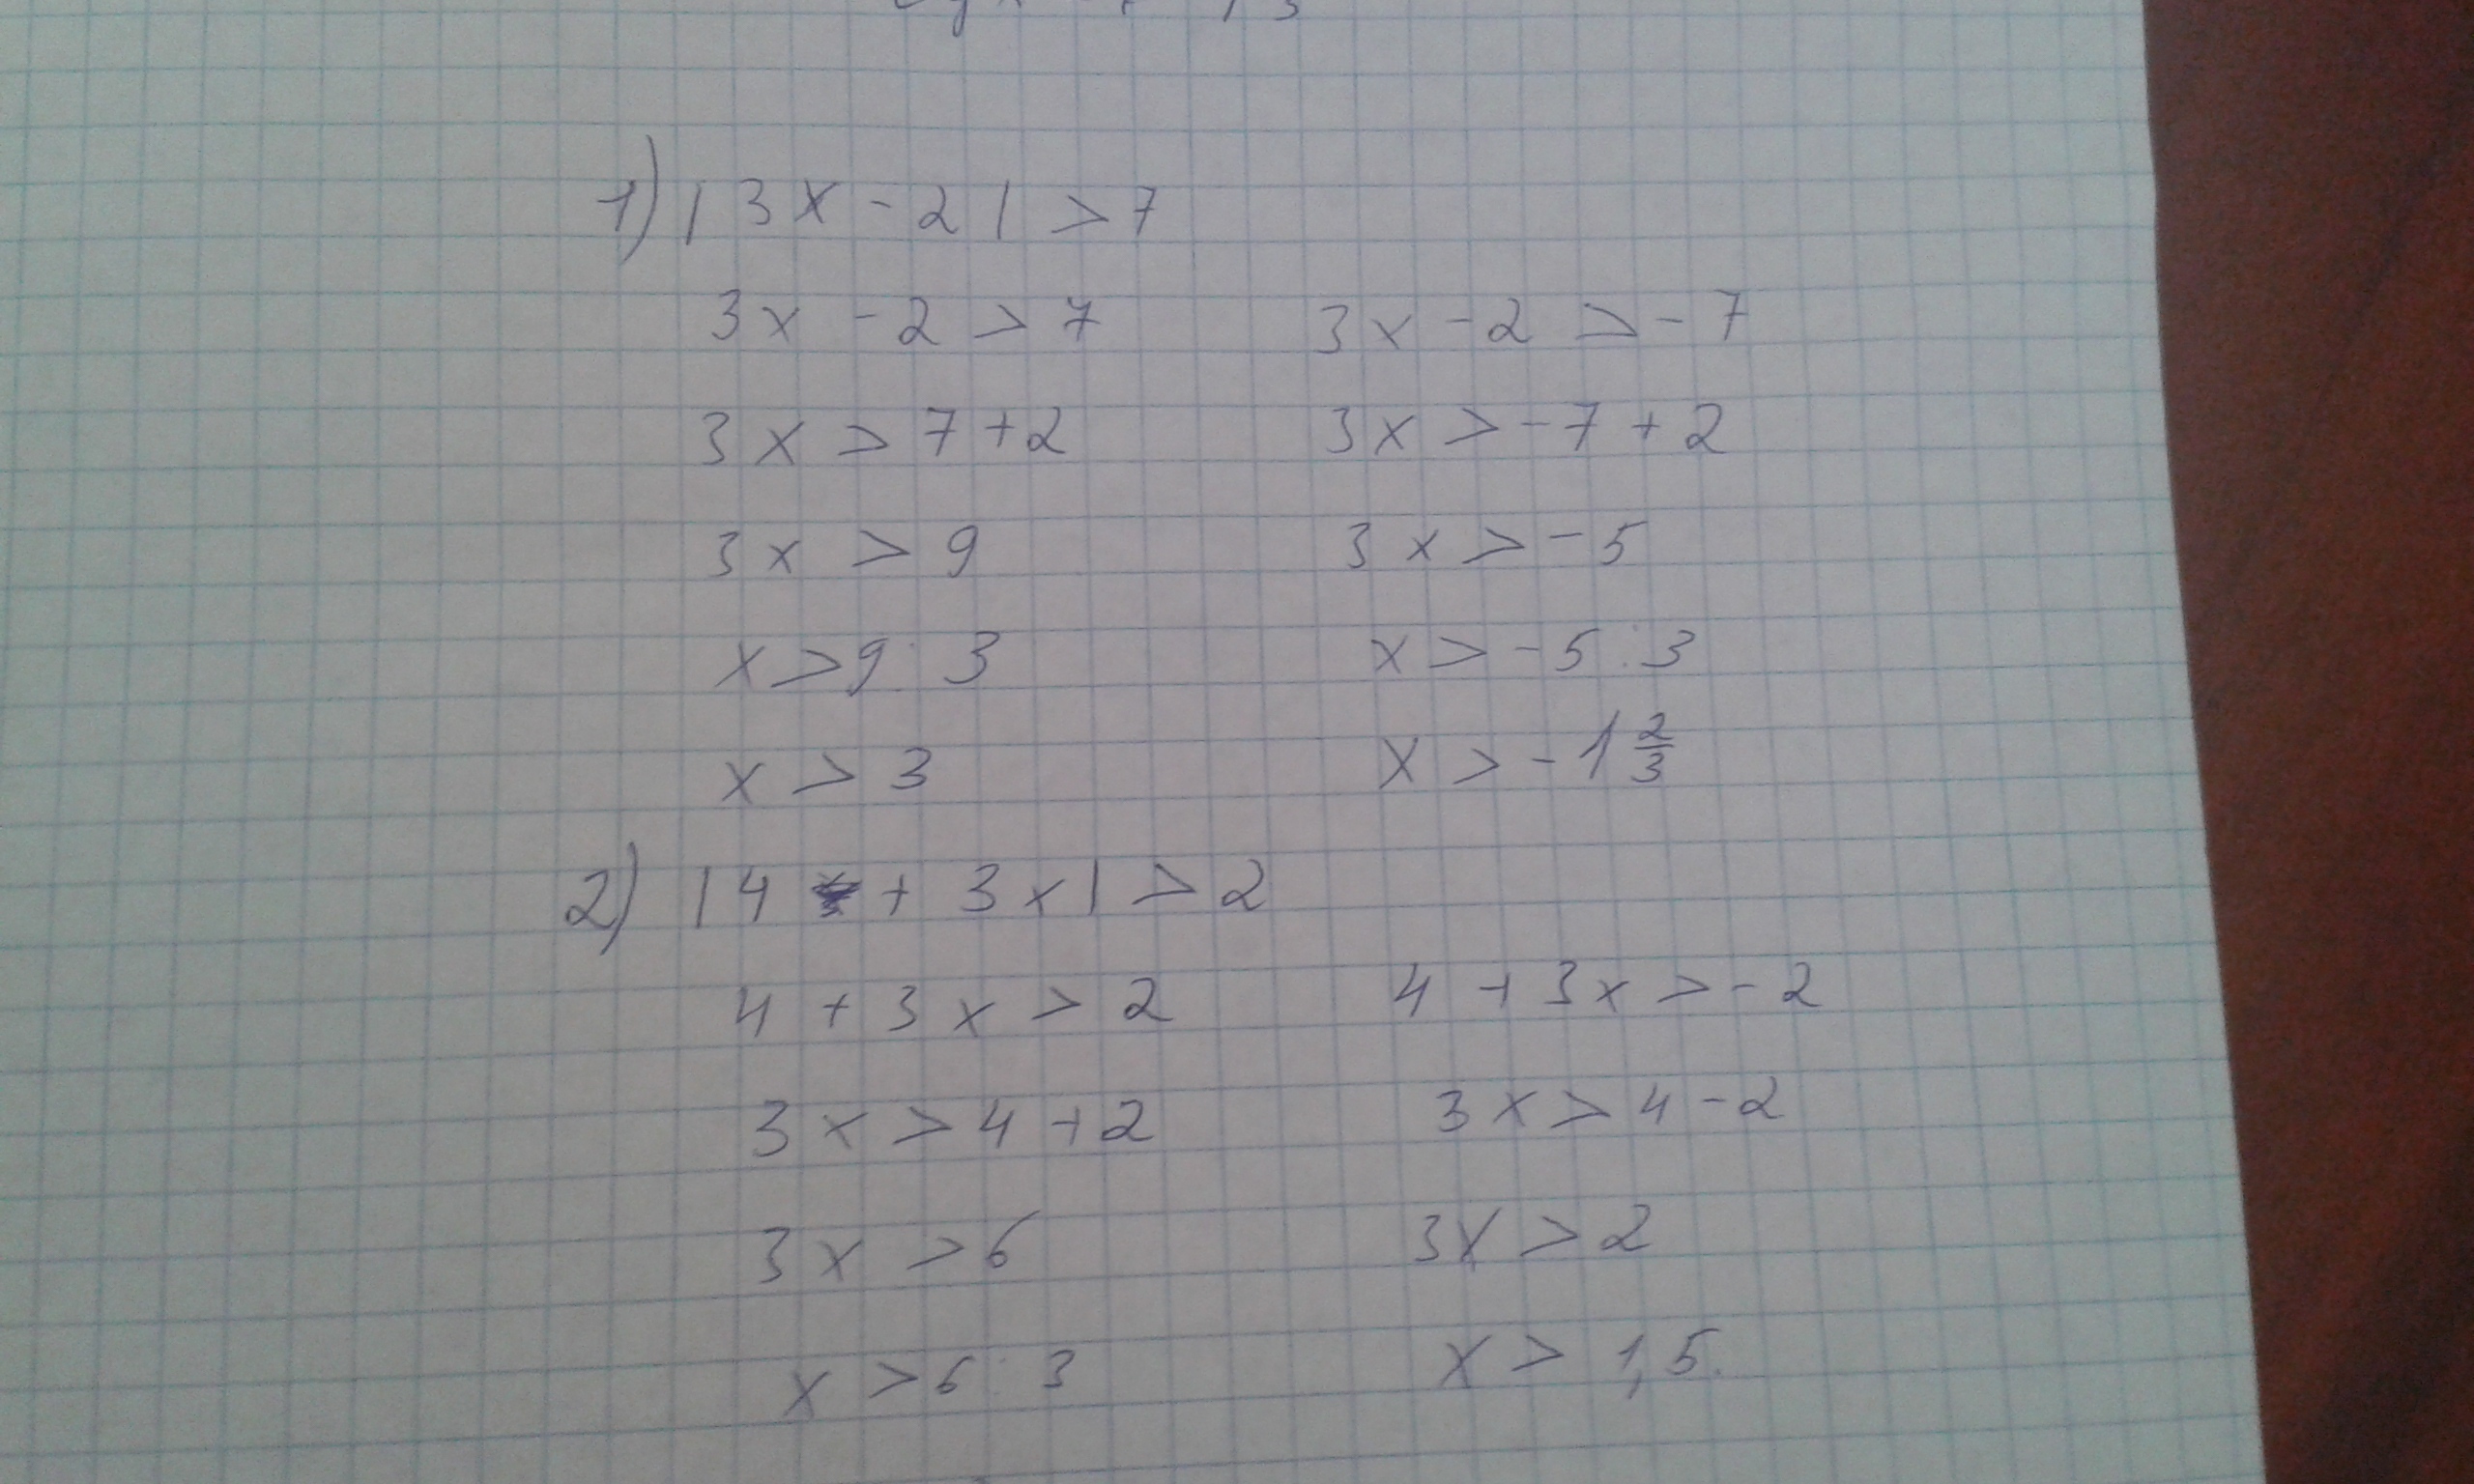 1) |3x - 2| > 7
3x - 2 > 7 3x - 2 > -7
3x > 7 + 2 3x > -7 + 2
3x > 9 3x > -5
x > 9 : 3 x > -5 : 3
x > 3 x > -1 2/3
2) |4 + 3x| > 2
4 + 3x > 2 4 + 3x > -2
3x > 4 + 2 3x > 4 - 2
3x > 6 3x > 2
x > 6 : 3 x > 1,5.